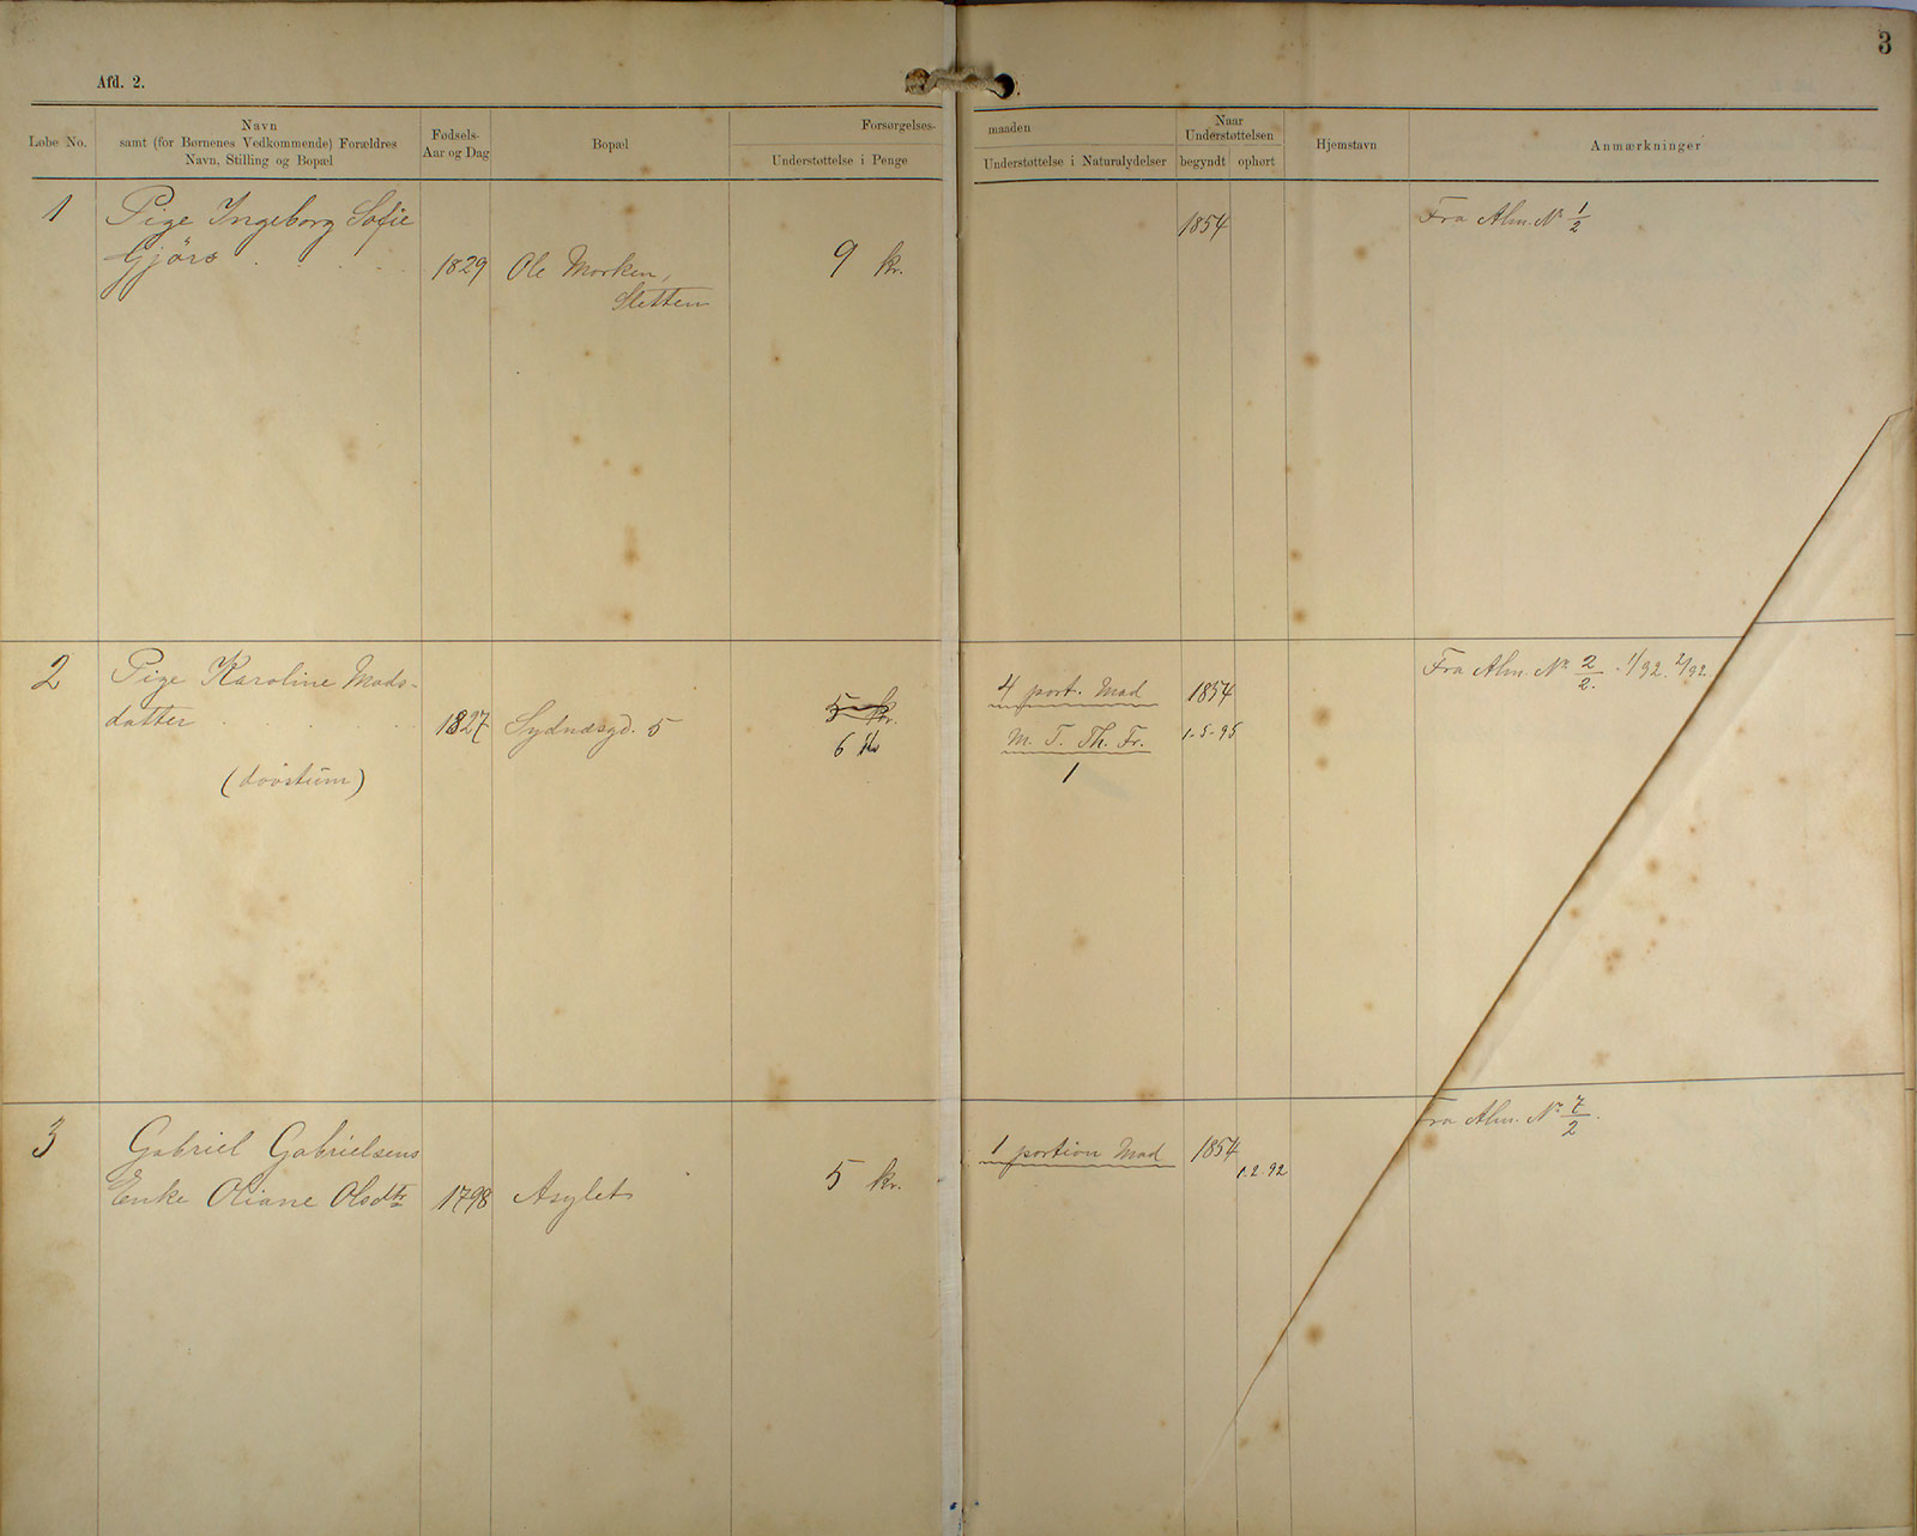 3
Afd. 2.
Løbe No.
Navn
samt (for Børnenes Vedkommende) Forældres
Navn, Stilling og Bopæl
Fødsels-
Aar og Dag
Bopæl
Forsørgelses-
Understøttelse i Penge
maaden
Understøttelse i Naturalydelser
Naar
Understøttelsen
begyndt ophørt
Hjemstavn
Anmærkninger
1
Pige Ingeborg Sofie
Gjörs
1829
Ole Morken,
Sletten
9 kr.
1854
Fra Alm. No 1/2
2
Pige Karoline Mads-
datter
(dövstum)
1827
Sydnæsgd. 5
5 kr.
6 Kr
4 port. Mad
M. T. Th. Fr.
1
1854
1-5-95
Fra Alm. No 2/2. 1/92. 2/92.
3
Gabriel Gabrielsens
Enke Oliane Olsdtr
1798
Asylet
5 kr.
1 portion Mad
1854
1.2.92
Fra Alm. No 7/2.